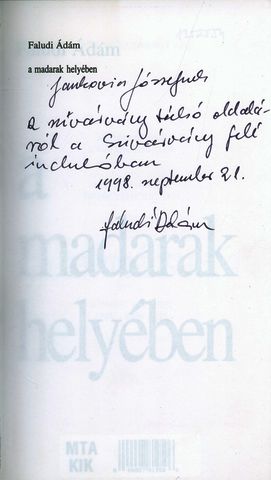 Faludi Ádám
a madarak helyében
Jankovics Józsefnek
a szivárvány túlsó oldalá-
ról a Szivárvány felé
indulóban
1998. szeptember 21.
Faludi Ádám
a
madarak
helyében
MTA
KIK